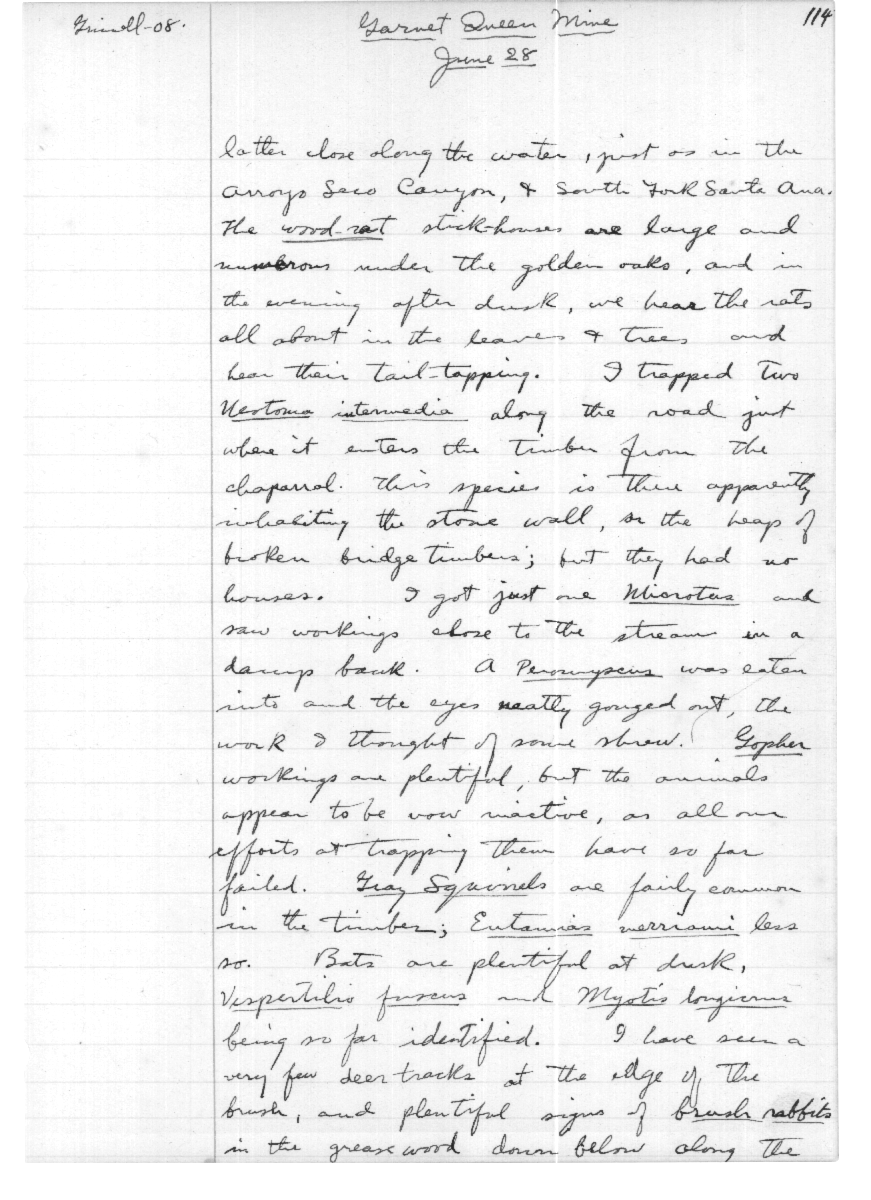 Grinnell-08.
Garnet Queen Mine
114
June 28
latter close along the water, just as in the
Arroyo Seco Canyon, & South Fork Santa Ana.
The wood-rat stick-houses are large and
numerous under the golden oaks, and in
the evening after dusk, we hear the rats
all about in the leaves & trees and
hear their tail-tapping. I trapped two
Neotoma intermedia along the road just
where it enters the timber from the
chaparral. This species is there apparently
inhabiting the stone wall, or the heap of
broken bridge timbers; but they had no
houses. I got just one Microtus and
saw workings close to the stream in a
damp bank. A Peromyscus was eaten
into and the eyes neatly gouged out, the
work I thought of some shrew. Gopher
workings are plentiful, but the animals
appear to be now inactive, as all our
efforts at trapping them have so far
failed. Gray Squirrels are fairly common
in the timber; Eutamias merriami less
so. Bats are plentiful at dusk,
Vespertilio fuscus and Myotis longicrus
being so far identified. I have seen a
very few deer tracks at the edge of the
brush, and plentiful signs of brush rabbits
in the greasewood down below along the